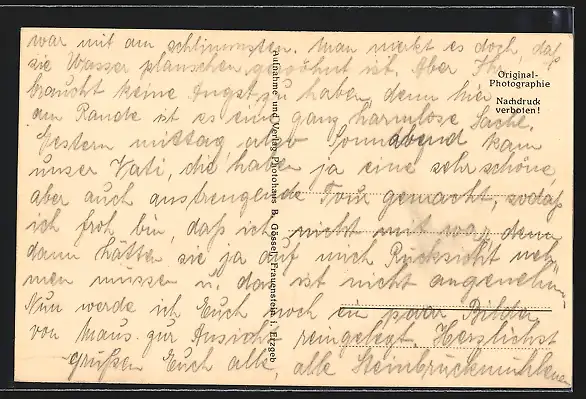 war mit am schlimmsten. Man merkt es doch, daß
sie Wasser planschen gewöhnt ist. Aber Ihr
braucht keine Angst zu haben denn hier
am Rande ist es eine ganz harmlose Sache.
Gestern mittag, also Sonnabend kam
unser Vati, die haben ja eine sehr schöne,
aber auch anstrengende Tour gemacht, sodaß
ich froh bin, daß ich nicht mit war, denn
dann hätten sie ja auf mich Rücksicht neh-
men müssen u. das ist nicht angenehm.
Nun werde ich Euch noch ein paar Bilder
von Maus zur Ansicht reingelegt. Herzlichst
grüßen Euch alle, alle Steinbrückmühlener
Original-
Photographie
Nachdruck
verboten!
Aufnahme und Verlag Photohaus B. Gössel, Frauenstein i. Erzgeb